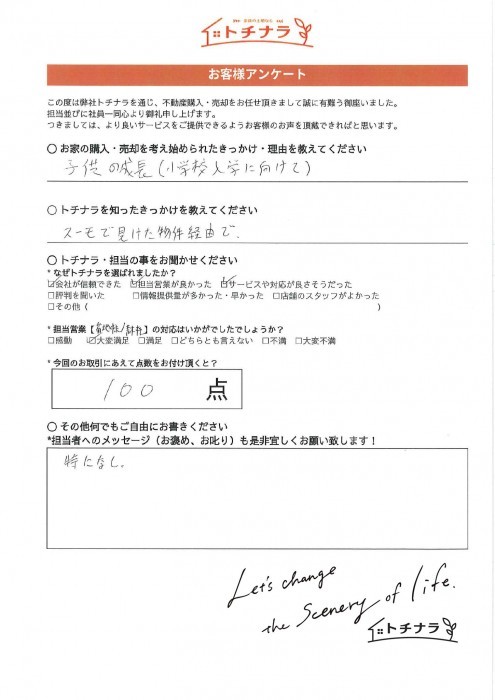 トチナラ
お客様アンケート
この度は弊社トチナラを通じ、不動産購入・売却をお任せ頂きまして誠に有難う御座いました。
担当並びに社員一同心より御礼申し上げます。
つきましては、より良いサービスをご提供できるようお客様のお声を頂戴できればと思います。
〇 お家の購入・売却を考え始められたきっかけ・理由を教えてください
子供の成長(小学校入学に向けて)
〇 トチナラを知ったきっかけを教えてください
スーモで見けた物件経由で.
〇 トチナラ・担当の事をお聞かせください
* なぜトチナラを選ばれましたか?
☑会社が信頼できた ☑担当営業が良かった ☑サービスや対応が良さそうだった
□評判を聞いた □情報提供量が多かった・早かった □店舗のスタッフがよかった
□その他 ( )
* 担当営業【 】の対応はいかがでしたでしょうか?
□感動 ☑大変満足 □満足 □どちらとも言えない □不満 □大変不満
* 今回のお取引にあえて点数をお付け頂くと?
100 点
〇 その他何でもご自由にお書きください
*担当者へのメッセージ(お褒め、お叱り)も是非宜しくお願い致します!
特になし。
Let's change
the Scenery of life.
トチナラ